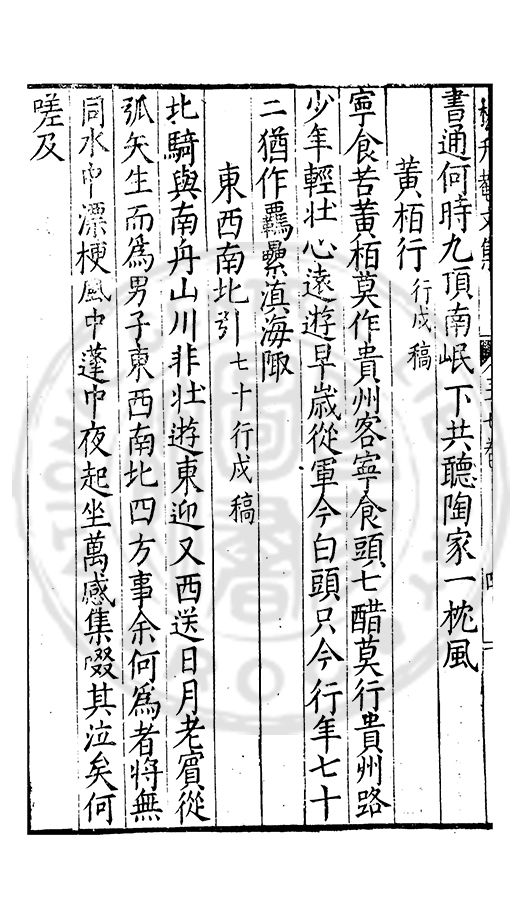 書通何時九頂南岷下共聽陶家一枕風
黃栢行行戍稿
寧食苦黃栢莫作貴州客寧食頭七醋莫行貴州路
少年輕壯心遠遊早歲從軍今白頭只今行年七十
二猶作羈纍滇海陬
東西南北引七十行戍稿
北騎與南舟山川非壯遊東迎又西送日月老賓從
弧矢生而為男子東西南北四方事余何為者將無
同水中漂梗風中蓬中夜起坐萬感集啜其泣矣何
嗟及